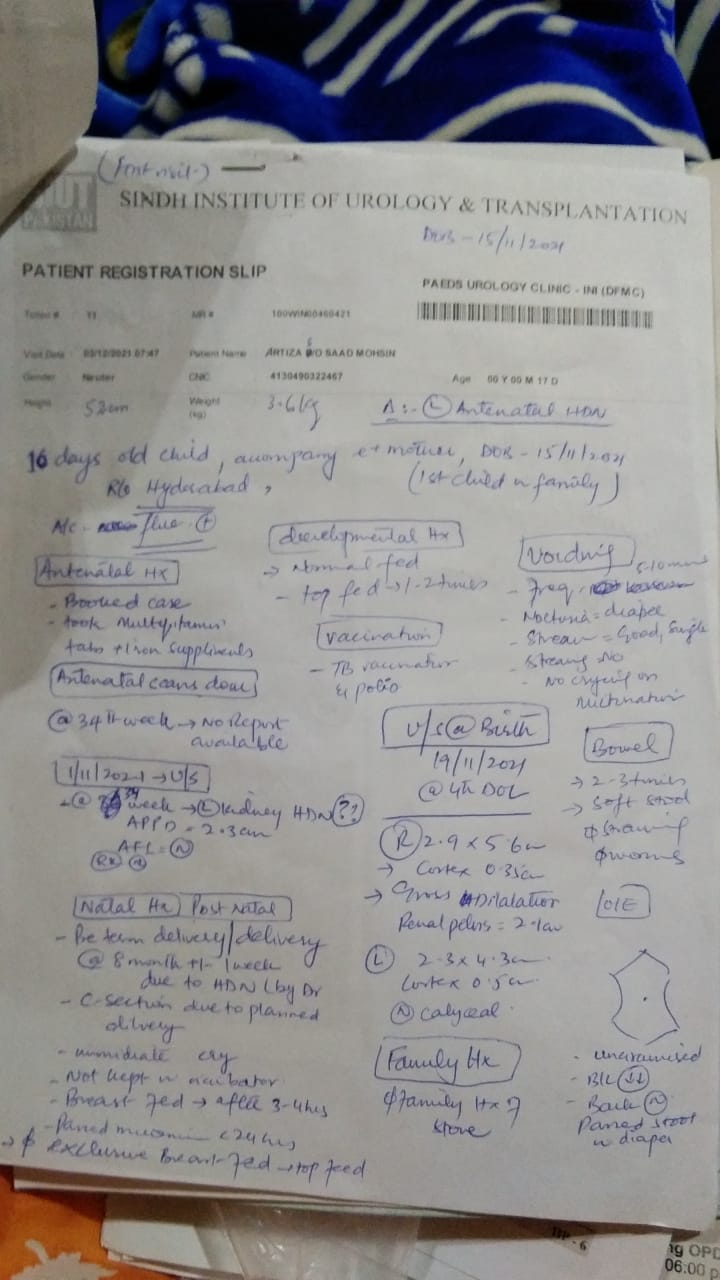 (first visit)
SINDH INSTITUTE OF UROLOGY & TRANSPLANTATION
PAKISTAN
DOB - 15/11/2021
PATIENT REGISTRATION SLIP
PAEDS UROLOGY CLINIC - INI (DFMC)
Token # 11 MR #
Visit Date 03/12/2021 07:47 Patient Name ARTIZA S/O SAAD MOHSIN
Gender Neuter CNIC 4130490322467 Age 00 Y 00 M 17 D
Height 52cm Weight (kg) 3.6kg
Δ:- (L) Antenatal HDN
16 days old child, accompany mother, DOB - 15/11/2021
R/o Hyderabad, (1st child in family)
A/c - flue (+)
Antenatal Hx
- Booked case
- took Multivitamin
tabs + Iron Suppliments
Antenatal scans done
@ 34th week → No Report
available
1/11/2021 → U/S
- @ 34 week → (L) kidney HDN (??)
APPD = 2.3cm
AFL = (N)
(N)
Natal Hx Post Natal
- Pre term delivery/delivery
@ 8 month +/- 1 week
due to HDN (by Dr
- C-section due to planned
dilvery
- immidiate cry
- Not kept in incubator
- Breast fed → after 3-4hrs
<24hrs
→ ϕ exclusive Breast fed → top feed
developmental Hx
→ Normal fed
- top fed → 1-2 times
vaccination
- TB vaccination
& polio
U/S @ Birth
19/11/2021
@ 4th DOL
(R) 2.9 x 5.6cm
→ Cortex 0.35cm
→ Gross Dilatation
Renal pelvis = 2.1cm
(L) 2.3 x 4.3cm
Cortex 0.5cm
(N) calyceal
Family Hx
ϕ family Hx of
stone
Voiding
- freq.
- Nocturia = diaper
- Stream = Good, Single
- Straing No
- No crying on
micturation
Bowel
→ 2-3 times
→ Soft stool
ϕ straining
ϕ worms
O/E
- uncircumcised
- B/L (↓↓)
- Back (N)
Passed stool
in diaper
06:00 p